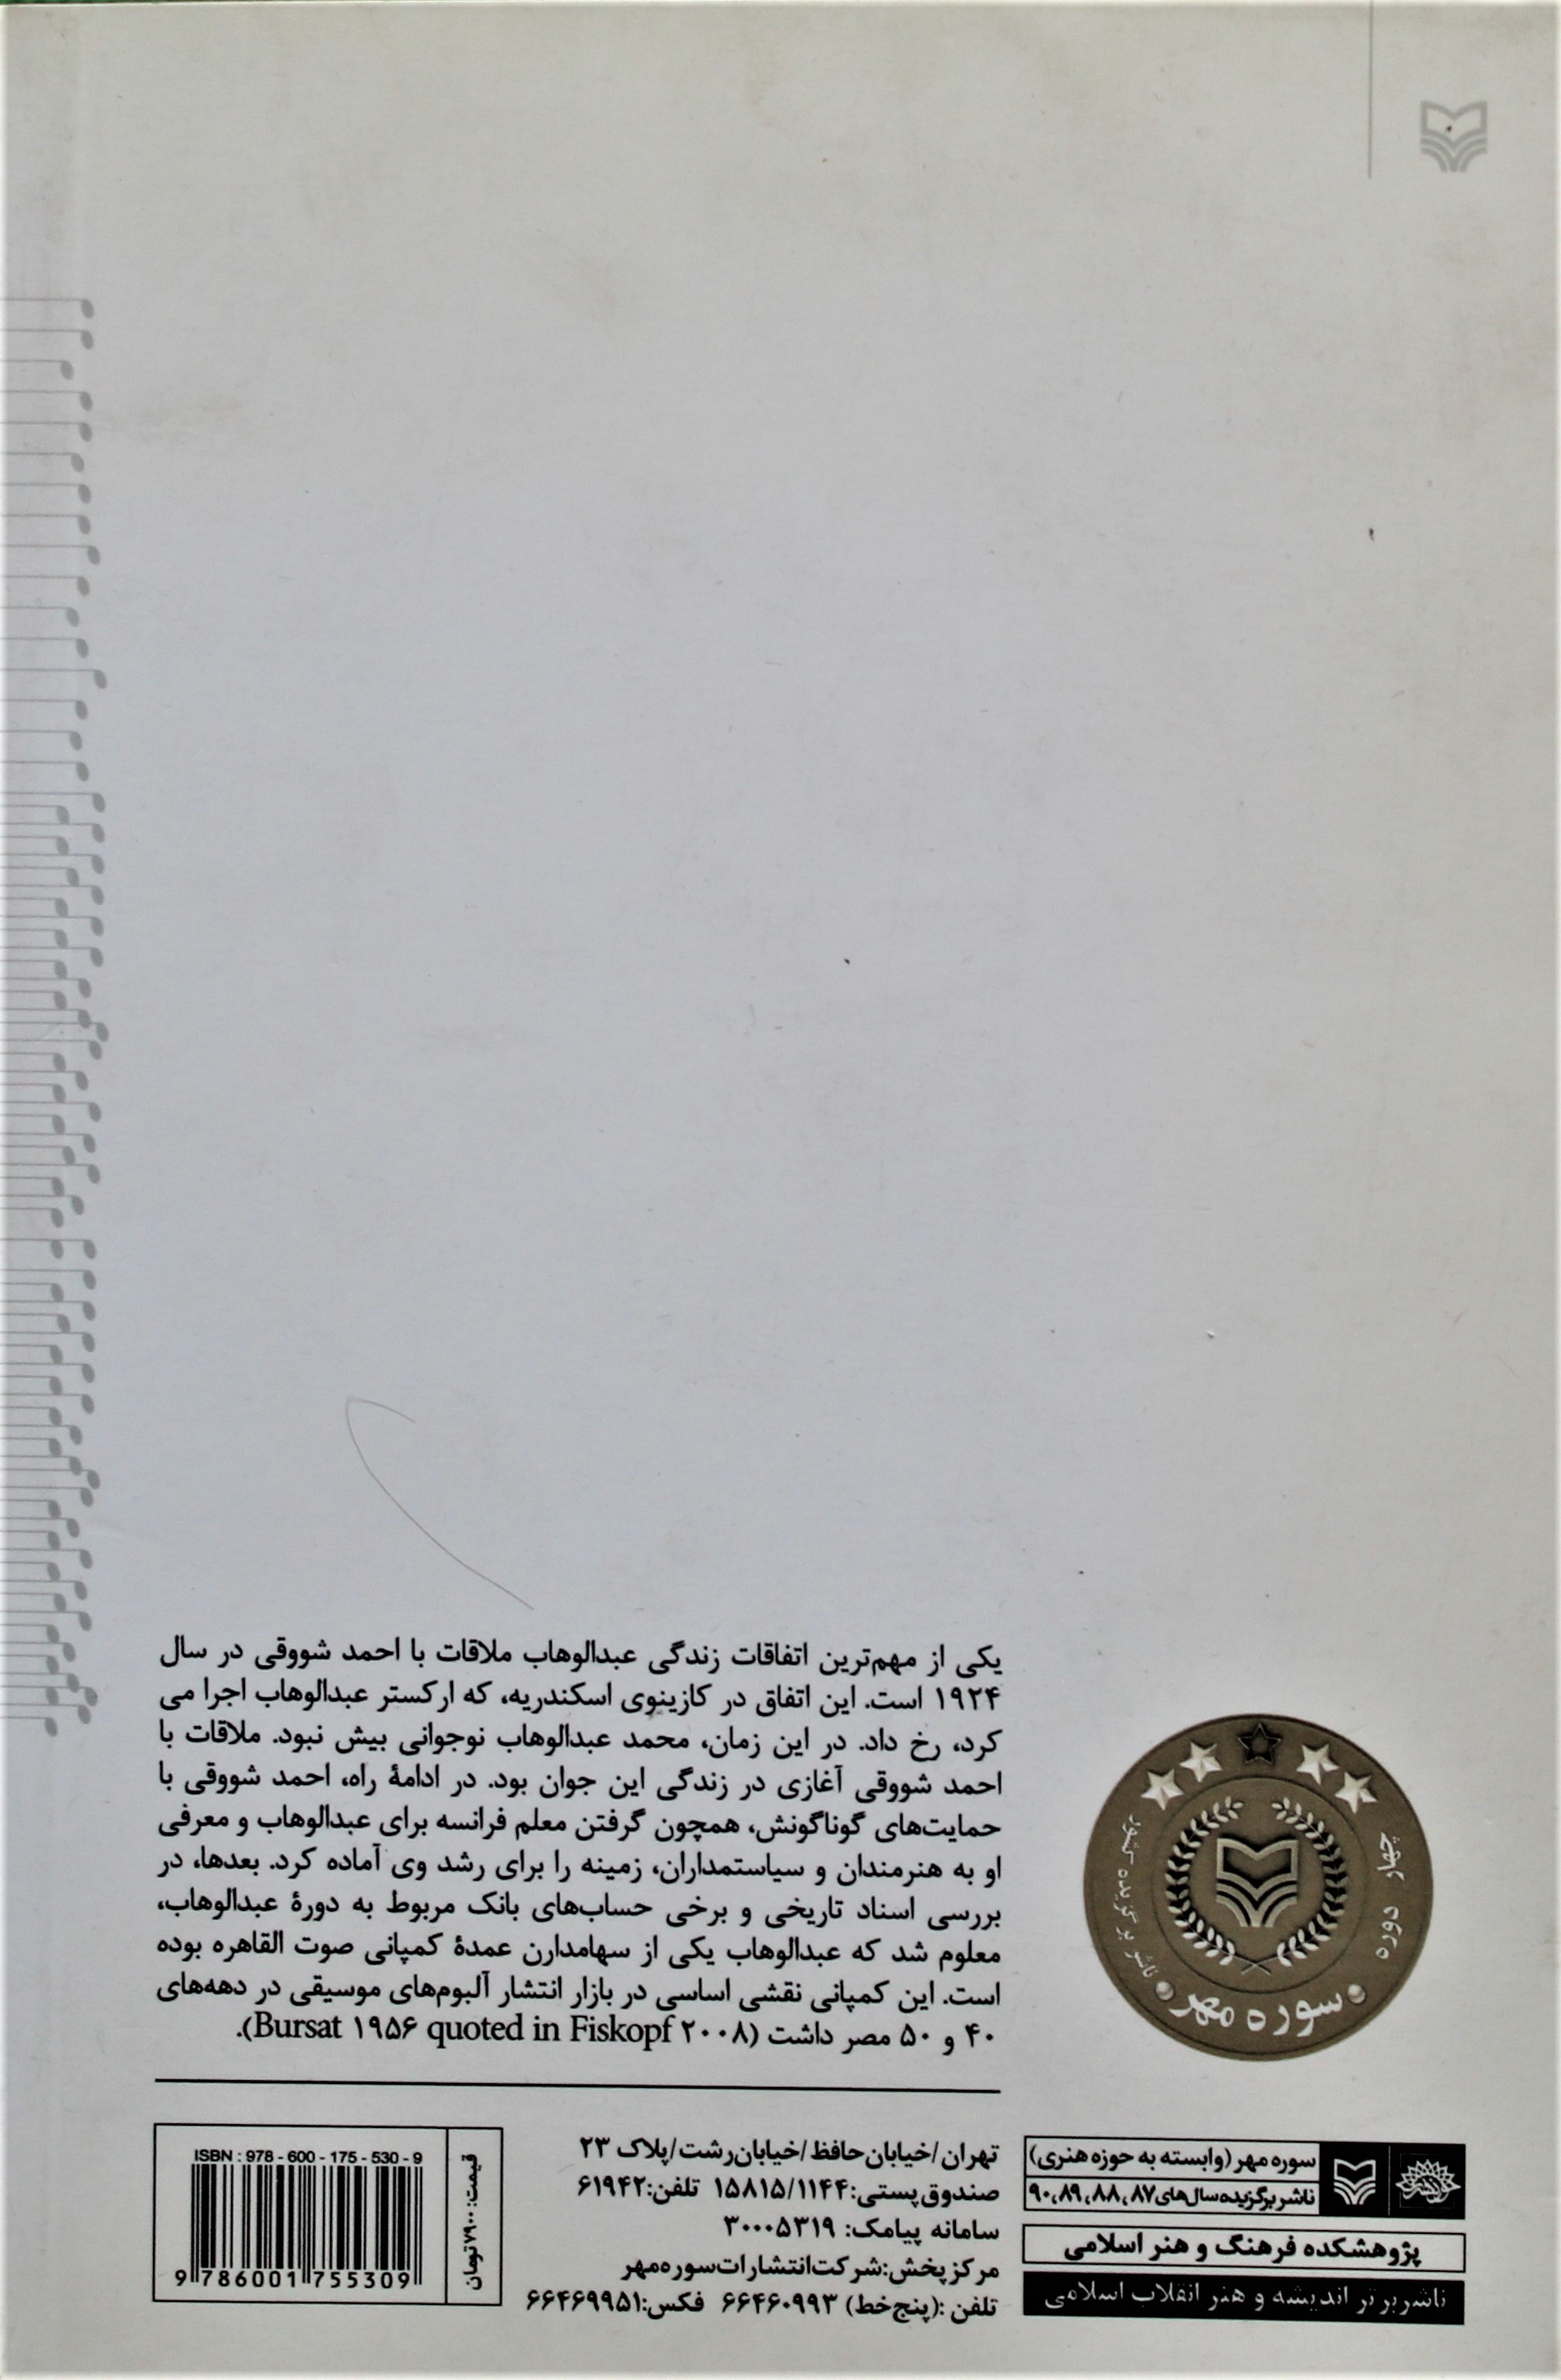 یکی از مهم‌ترین اتفاقات زندگی عبدالوهاب ملاقات با احمد شووقی در سال
۱۹۲۴ است. این اتفاق در کازینوی اسکندریه، که ارکستر عبدالوهاب اجرا می
کرد، رخ داد. در این زمان، محمد عبدالوهاب نوجوانی بیش نبود. ملاقات با
احمد شووقی آغازی در زندگی این جوان بود. در ادامهٔ راه، احمد شووقی با
حمایت‌های گوناگونش، همچون گرفتن معلم فرانسه برای عبدالوهاب و معرفی
او به هنرمندان و سیاستمداران، زمینه را برای رشد وی آماده کرد. بعدها، در
بررسی اسناد تاریخی و برخی حساب‌های بانک مربوط به دورهٔ عبدالوهاب،
معلوم شد که عبدالوهاب یکی از سهامدارن عمدهٔ کمپانی صوت القاهره بوده
است. این کمپانی نقشی اساسی در بازار انتشار آلبوم‌های موسیقی در دهه‌های
۴۰ و ۵۰ مصر داشت (Bursat ۱۹۵۶ quoted in Fiskopf ۲۰۰۸).
چهار دوره
ناشر برگزیده کشور
سوره مهر
سوره مهر (وابسته به حوزه هنری)
ناشر برگزیده سال‌های ۸۷، ۸۸، ۸۹، ۹۰
پژوهشکده فرهنگ و هنر اسلامی
ناشر برتر اندیشه و هنر انقلاب اسلامی
تهران/خیابان حافظ/خیابان رشت/پلاک ۲۳
صندوق پستی: ۱۵۸۱۵/۱۱۴۴ تلفن: ۶۱۹۴۲
سامانه پیامک: ۳۰۰۰۵۳۱۹
مرکز پخش: شرکت انتشارات سوره مهر
تلفن: (پنج خط) ۶۶۴۶۰۹۹۳ فکس: ۶۶۴۶۹۹۵۱
قیمت: ۷۹۰۰ تومان
ISBN : 978 - 600 - 175 - 530 - 9
9 786001 755309